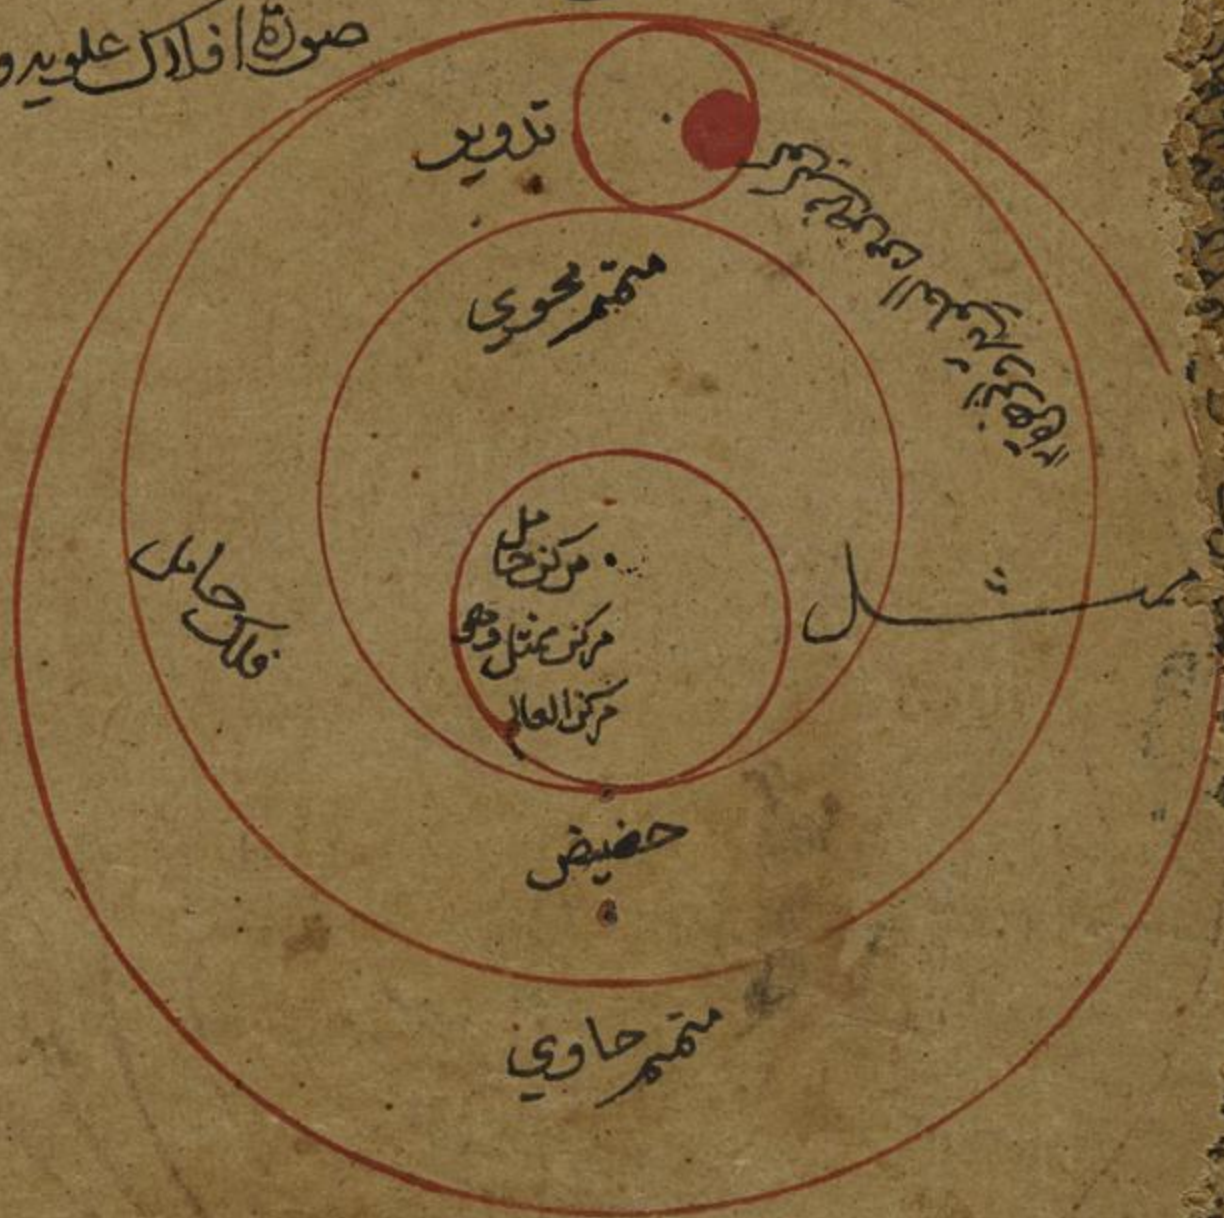 صورة افلاك علويه و
تدوير
متمم محوي
مركز حامل
مركز ممثل وهو
مركز العالم
ممثل
فلك حامل
حضيض
متمم حاوي